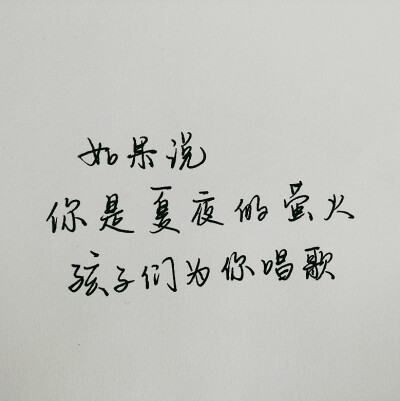 如果说
你是夏夜的萤火
孩子们为你唱歌